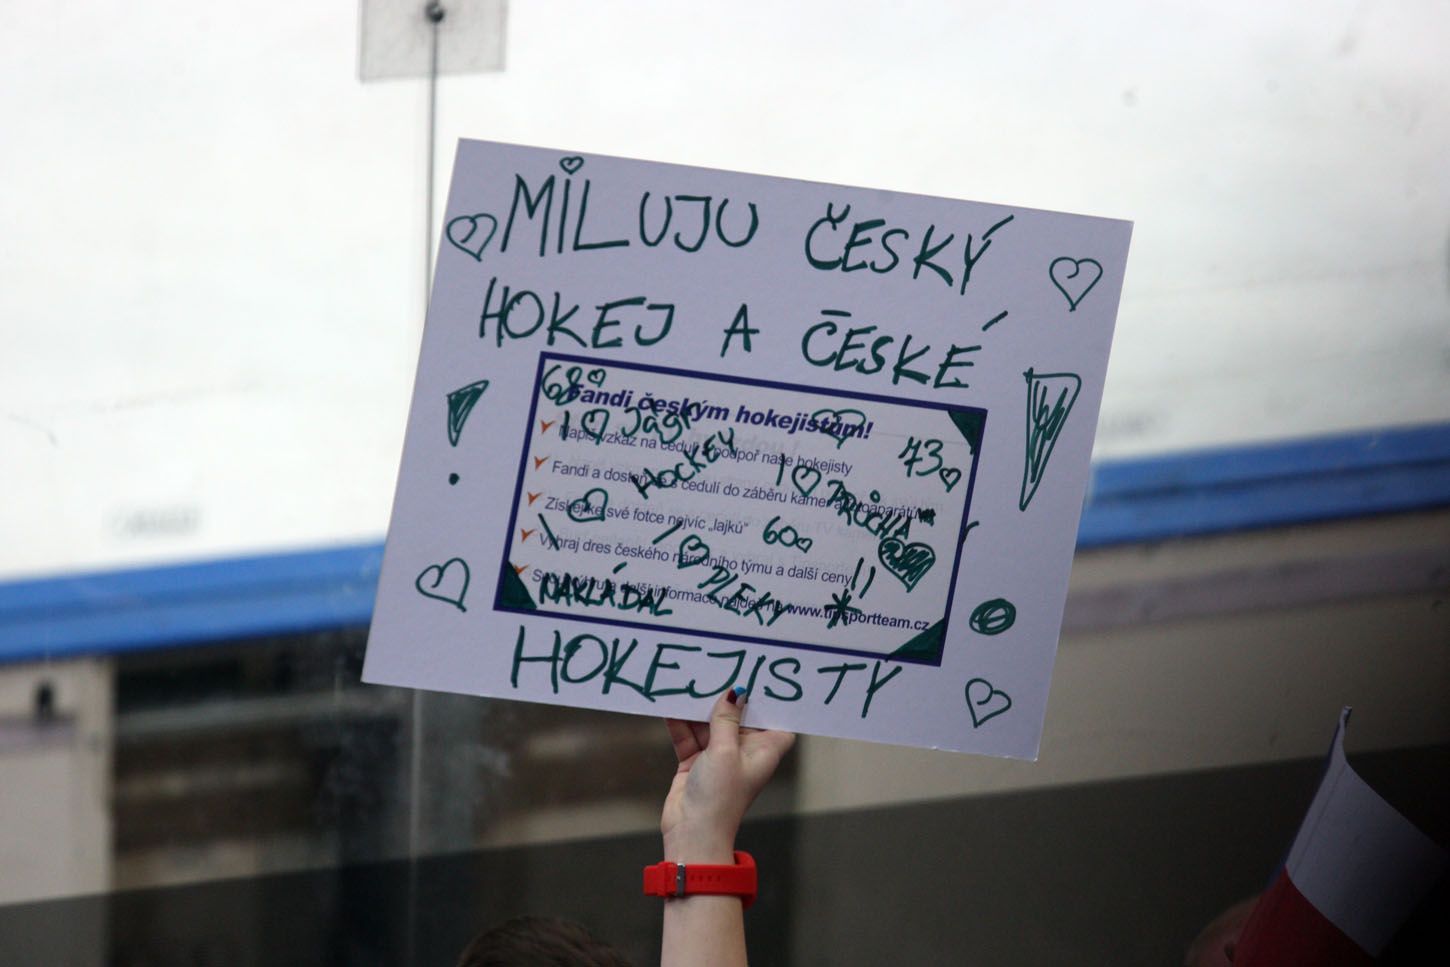 MILUJU ČESKÝ
HOKEJ A ČESKÉ
68
Fandi českým hokejistům!
I Jágr
73
Napiš vzkaz na ceduli a podpoř naše hokejisty
HOCKEY
I
Fandi a dostaň se s cedulí do záběru kamer a fotoaparátů
PRŮCHA
Získej ke své fotce nejvíc „lajků“
60
I
I
Vyhraj dres českého národního týmu a další ceny
!!
PLEKY
Svou výhru a další informace najdeš na www.tipsportteam.cz
NAKLÁDAL *
HOKEJISTY